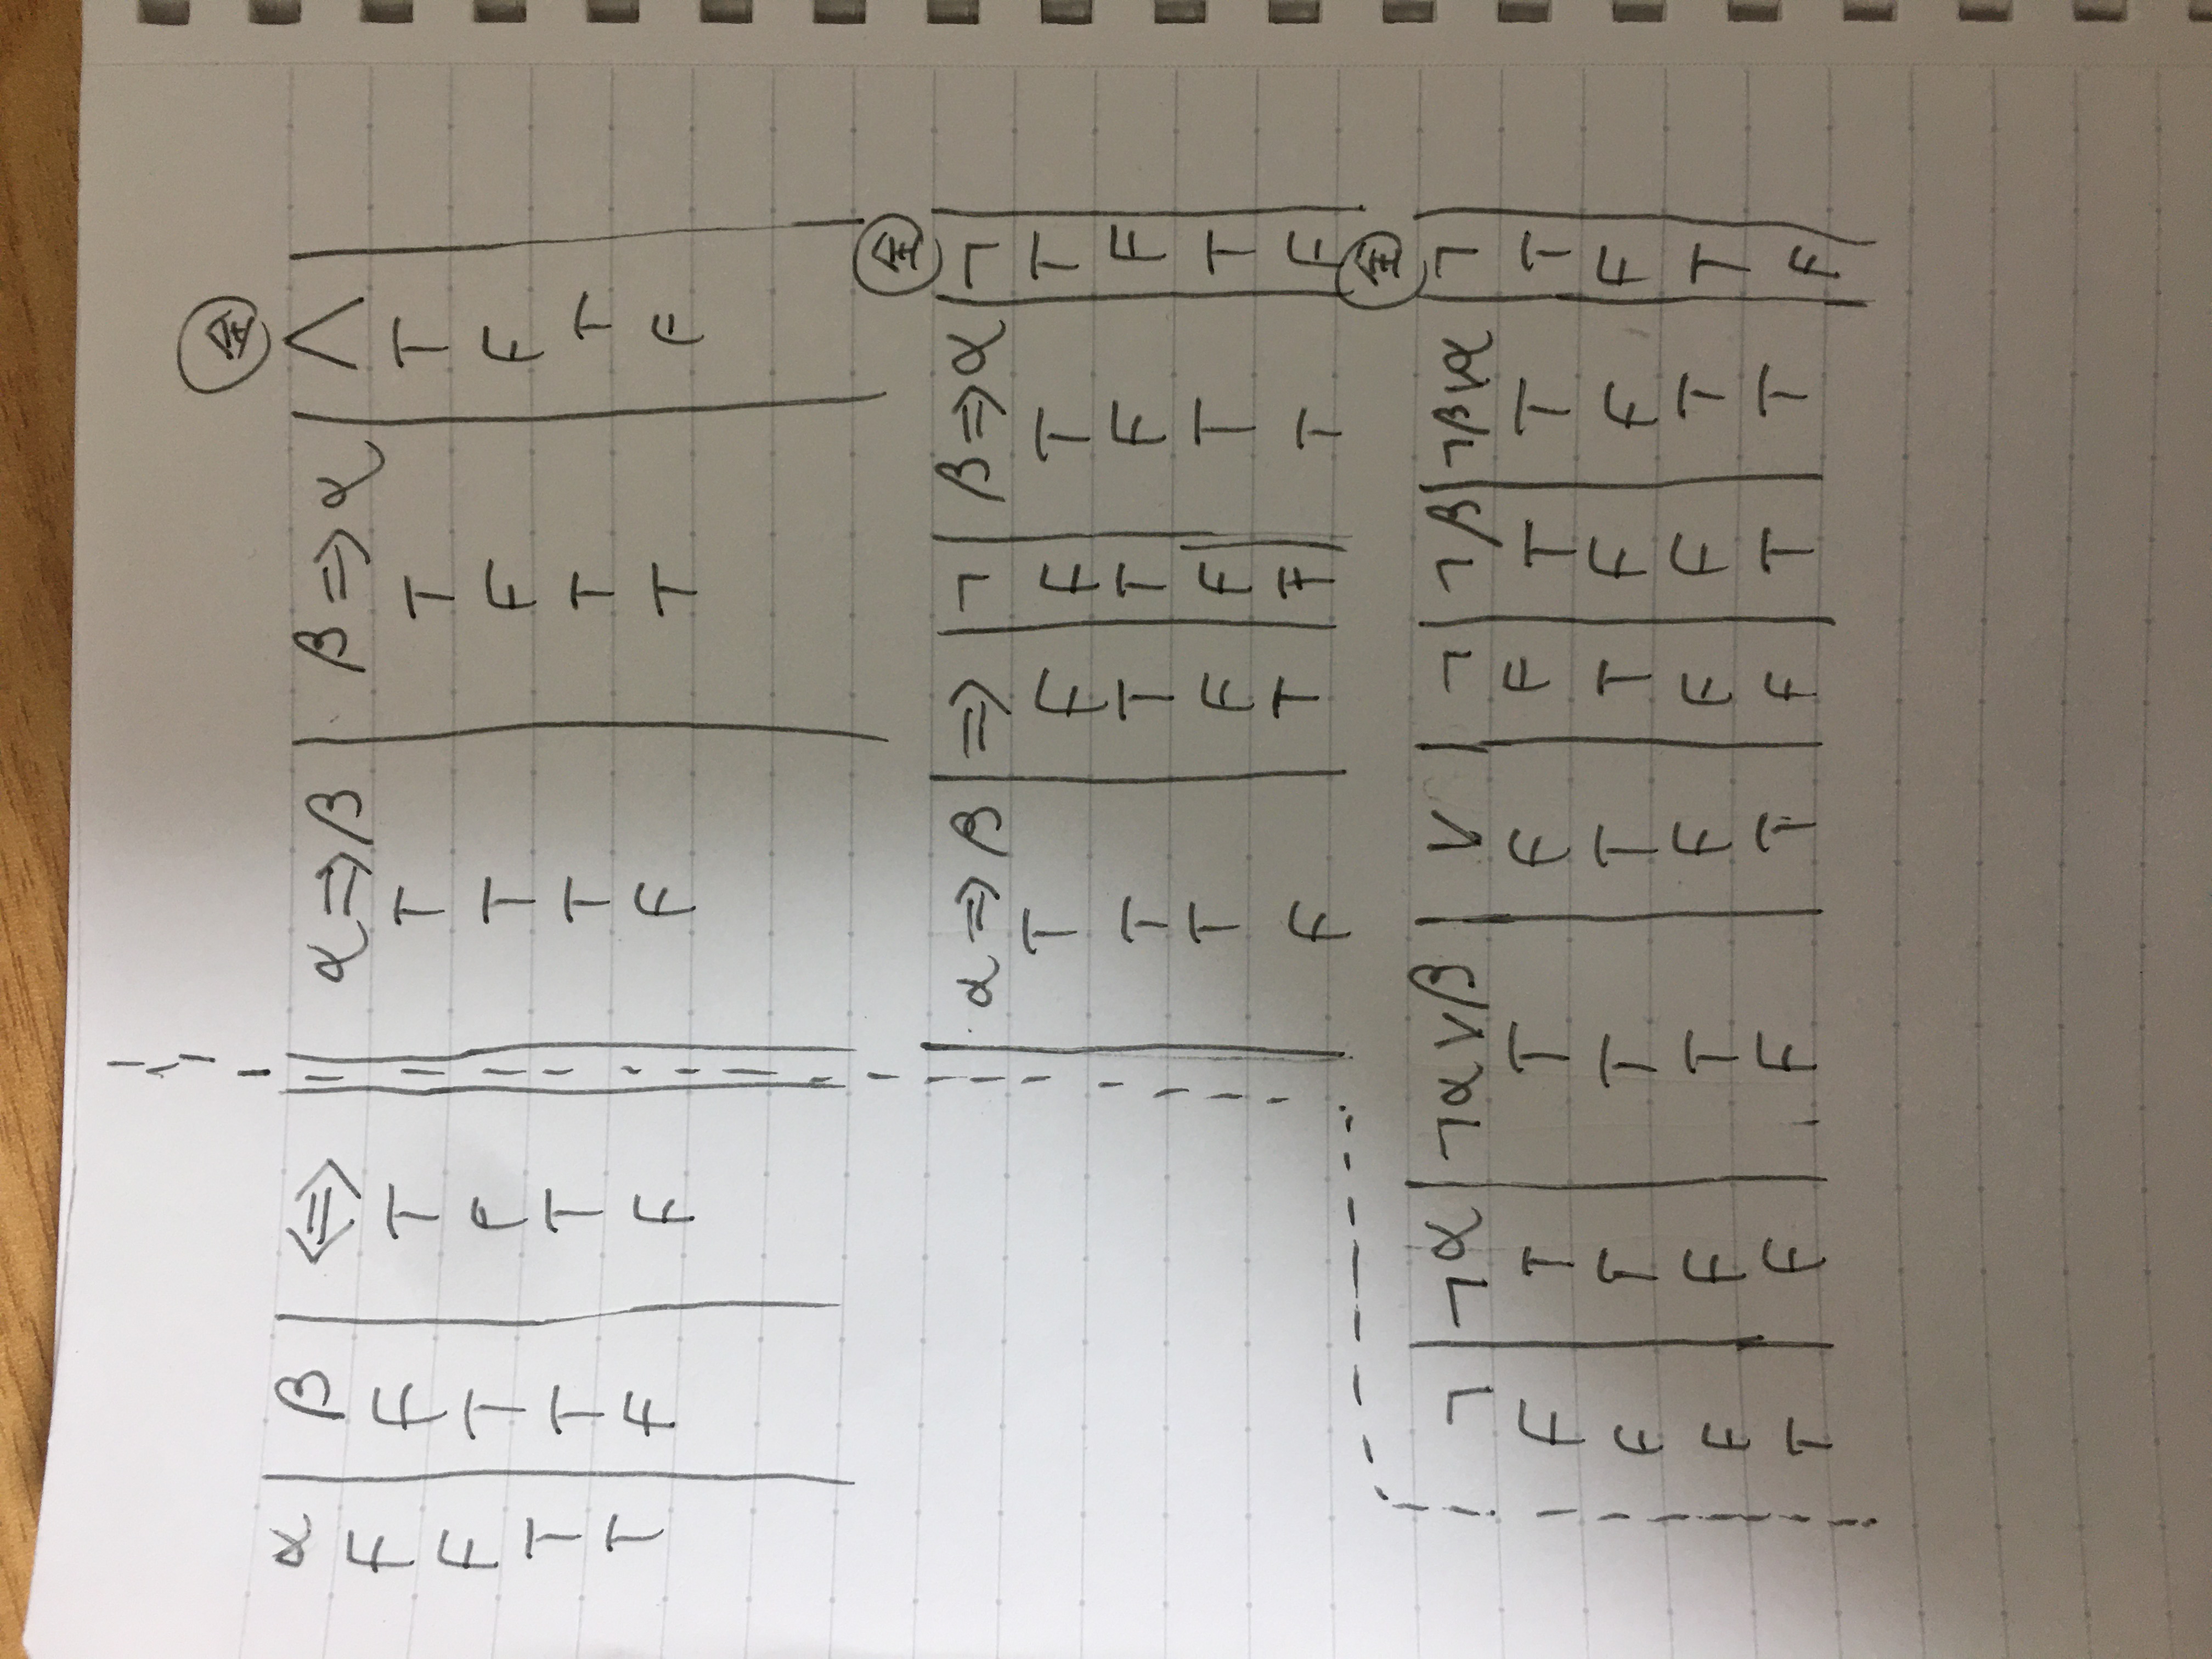 全
α β ⇔ α⇒β β⇒α ∧
F F T T T T
F T F T F F
T T T T T T
T F F F T F
全
α⇒β ⇒ ¬ β⇒α ¬
T F F T T
T T T F F
T F F T T
F T F T F
全
¬ ¬α ¬α∨β ∨ ¬ ¬β ¬β∨α ¬
F T T F F T T T
F T T T T F F F
F F T F F F T T
T F F T F T T F